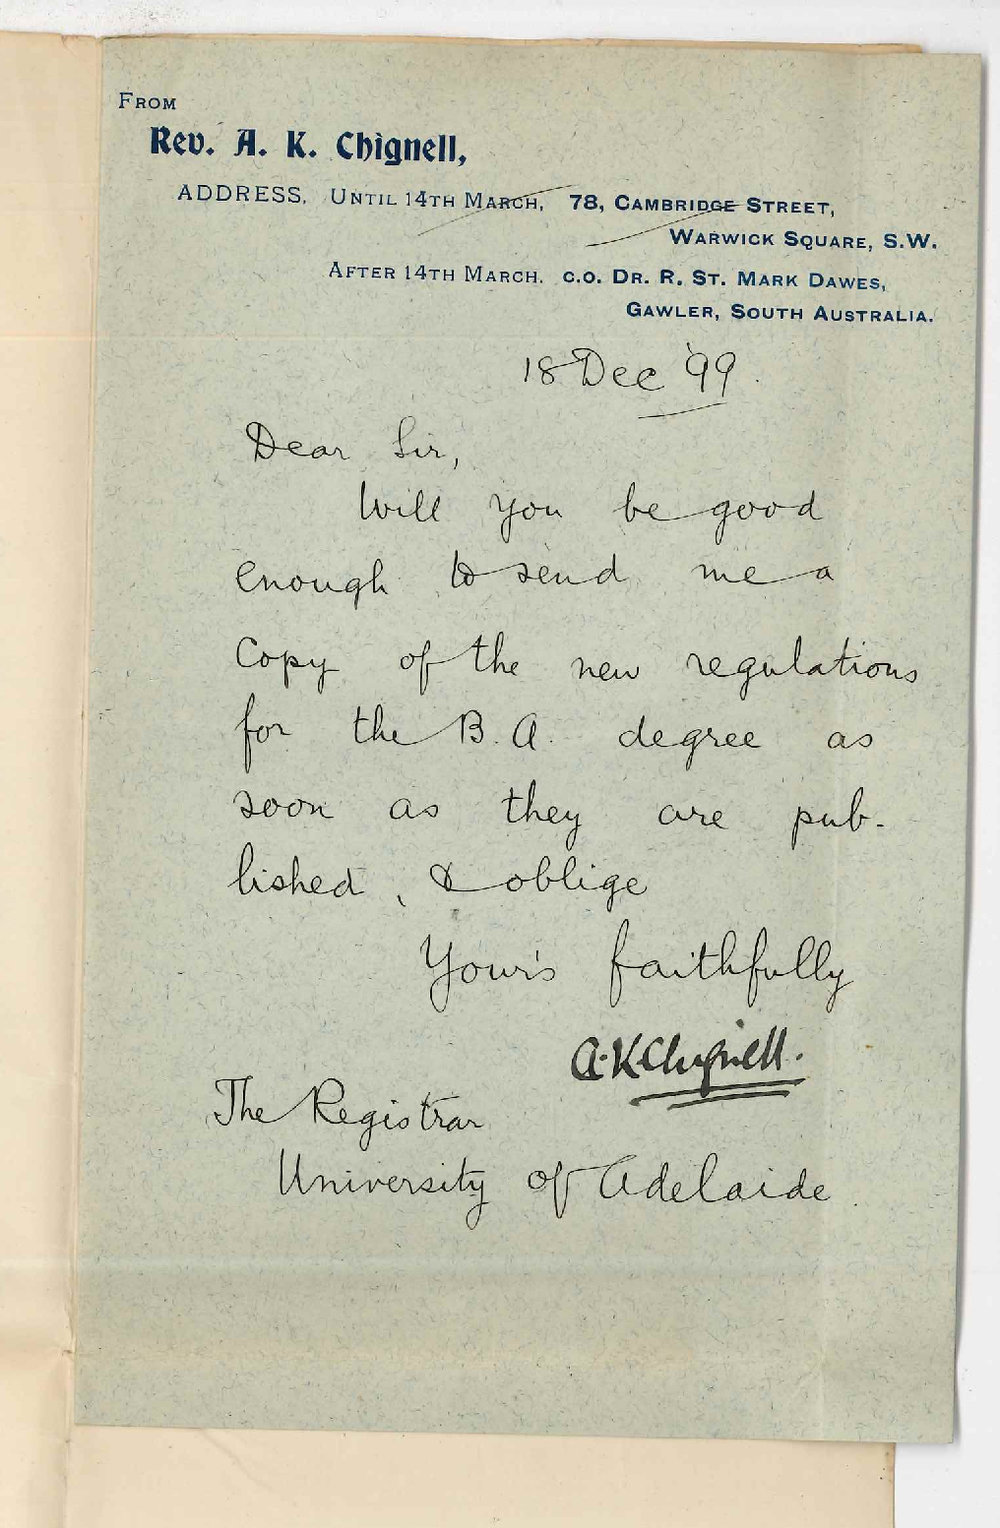 FROM
Rev. A. K. Chignell,
ADDRESS, UNTIL 14TH MARCH, 78, CAMBRIDGE STREET,
WARWICK SQUARE, S.W.
AFTER 14TH MARCH. C.O. DR. R. ST. MARK DAWES,
GAWLER, SOUTH AUSTRALIA.
18 Dec '99.
Dear Sir,
Will you be good
enough to send me a
copy of the new regulations
for the B.A. degree as
soon as they are pub-
lished, & oblige
Your's faithfully
A.K Chignell.
The Registrar
University of Adelaide